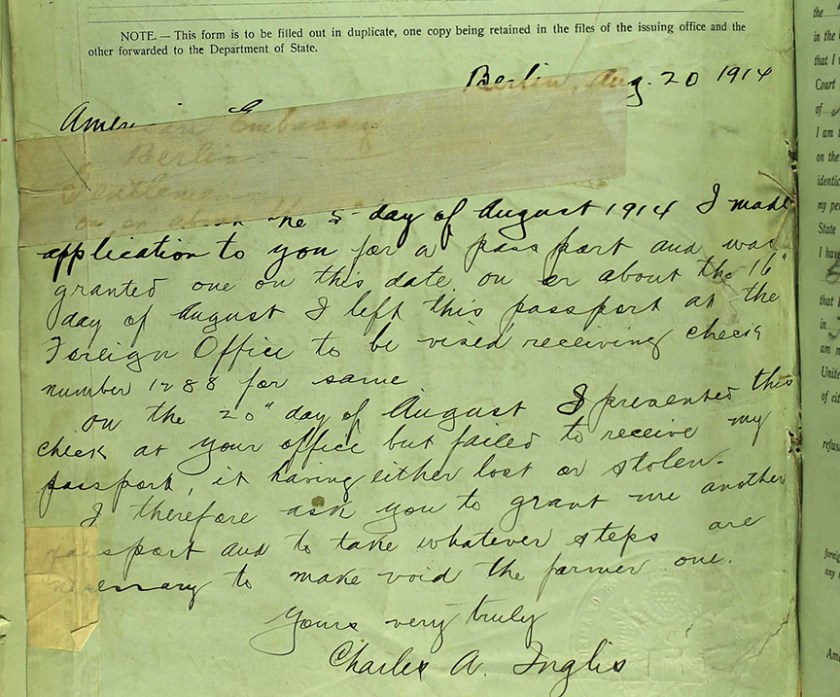 NOTE. — This form is to be filled out in duplicate, one copy being retained in the files of the issuing office and the
other forwarded to the Department of State.
Berlin, Aug. 20 1914
American Embassy
Berlin
Gentlemen
on or about the 5" day of August 1914 I made
application to you for a pass port and was
granted one on this date on or about the 16"
day of August I left this passport at the
Foreign Office to be vised receiving check
number 1288 for same
on the 20" day of August I presented this
check at your office but failed to receive my
passport, it having either lost or stolen.
I therefore ask you to grant me another
passport and to take whatever steps are
necessary to make void the former one.
Yours very truly
Charles A. Inglis
the
in the
that I
Court
of
I am
on the
identic
my per
State
I have
that I
in
am
Unite
of cit
refus
foreig
any
Am